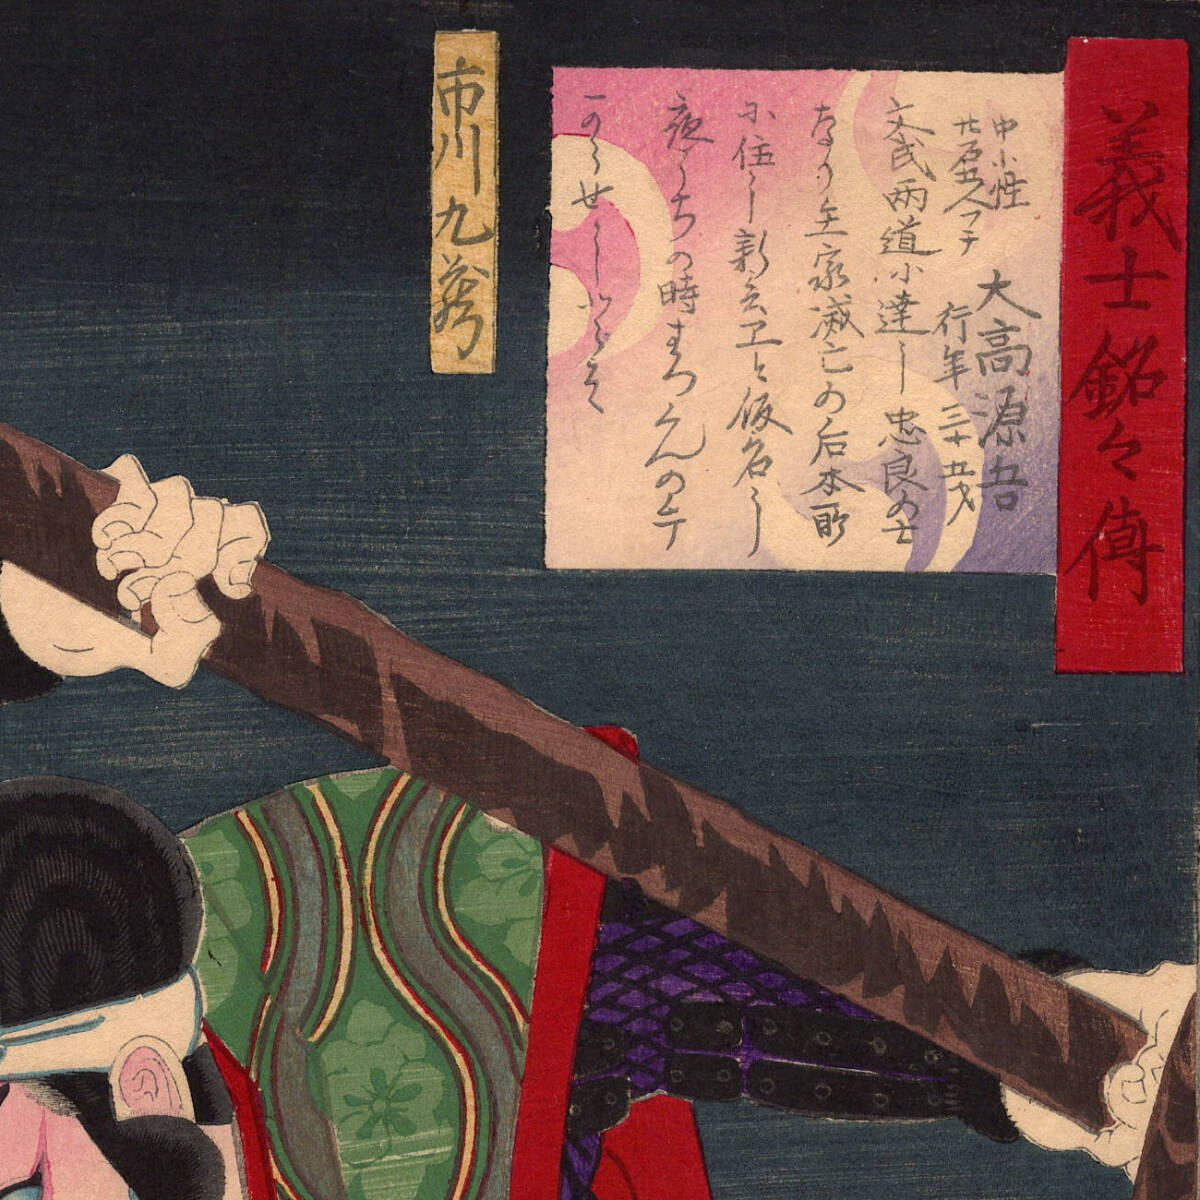 義士銘々傳
中小性
廿石五人フチ
大高源吾
行年三十五才
文武両道小達し忠良の士
なり主家滅亡の后本所
に住し新兵卫と仮名し
夜うちの時まつくんの
市川九蔵